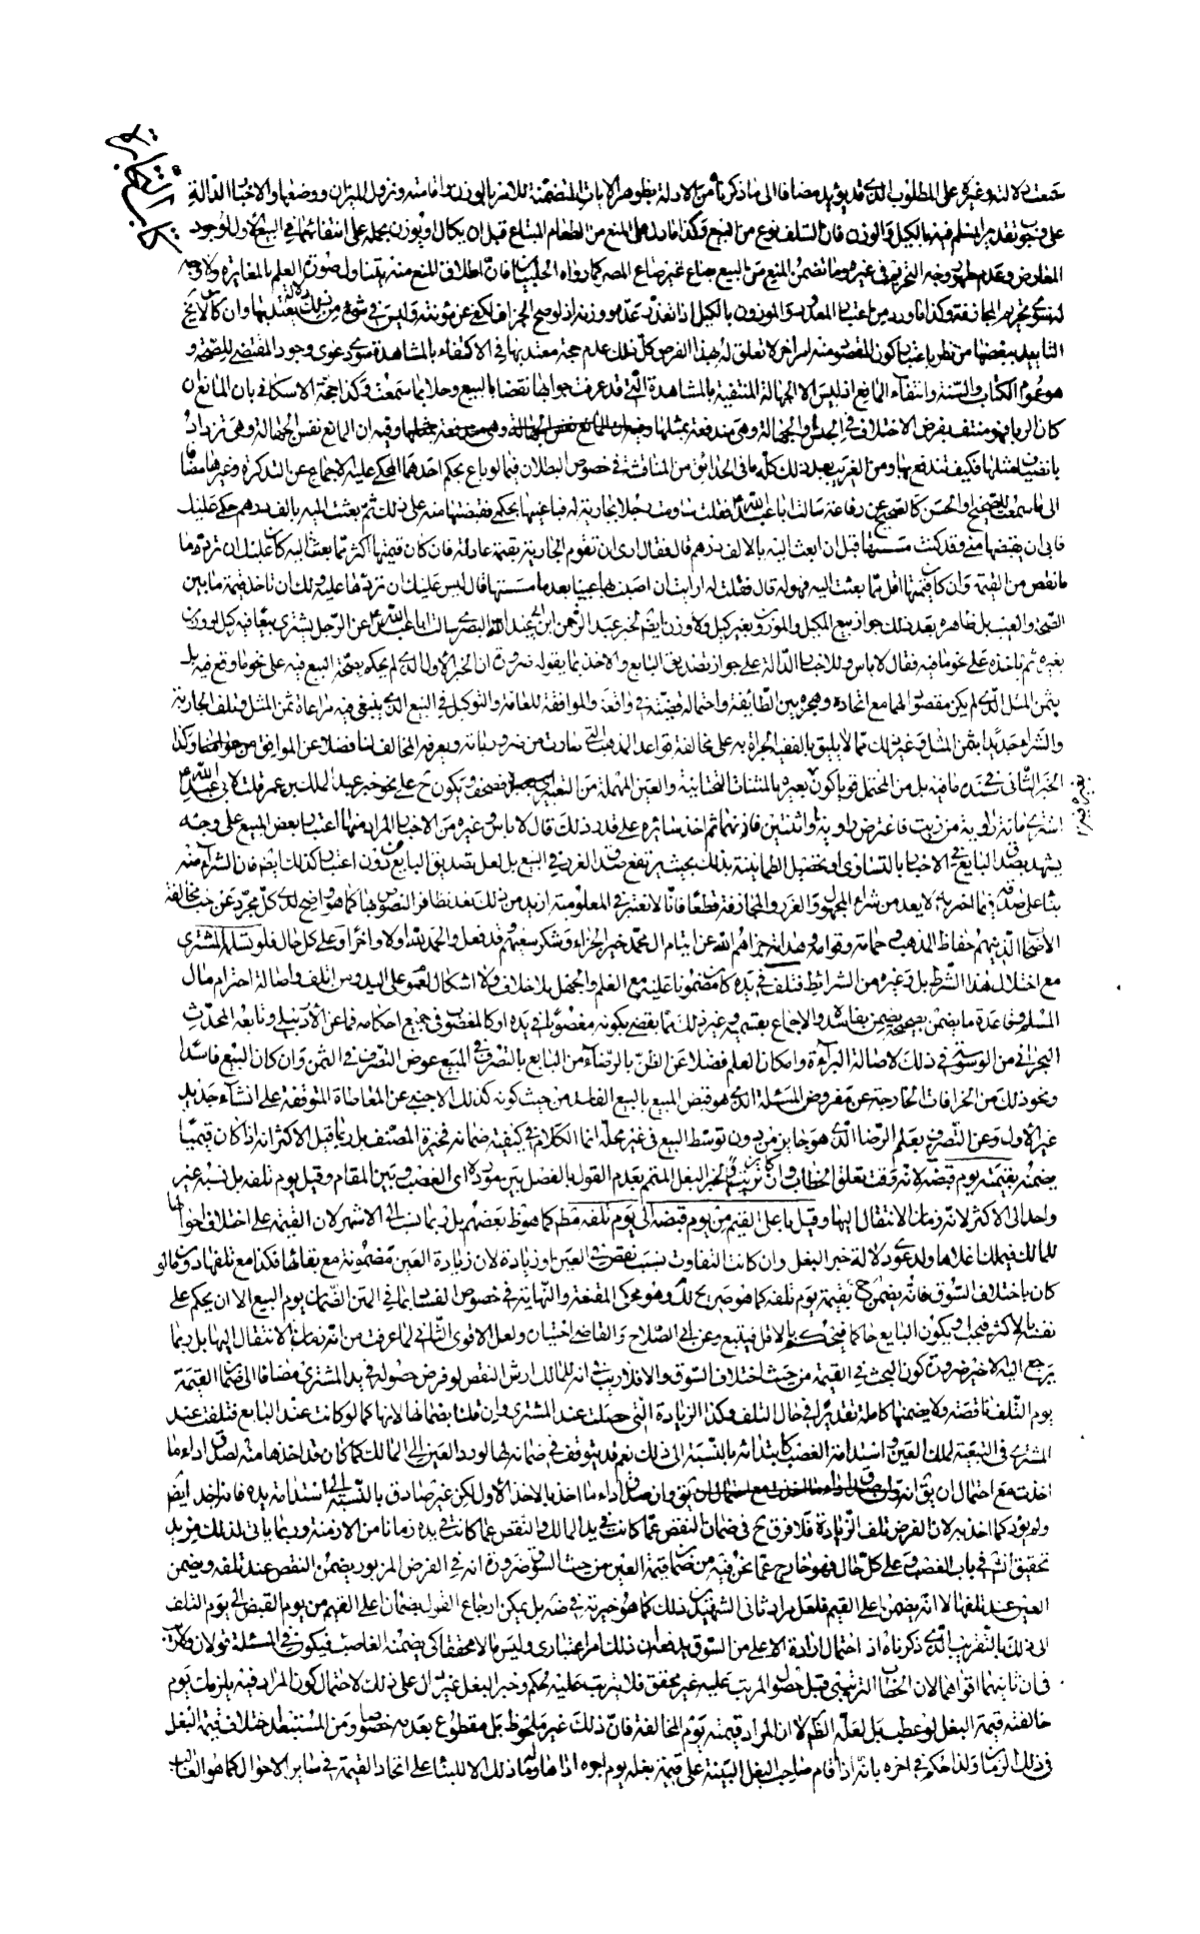 سمعت دلالته وغيره على المطلوب الذى قد يؤيد مضافا الى ما ذكرناه من الادلة بظواهر الايات المتضمنة للامر بالوزن واقامته ونزول الميزان ووضعها والاخبار الدالة
على وجوب تقدير المسلم فيه بالكيل والوزن فان السلف نوع من البيع وكذا ما دل على المنع من الطعام المبتاع قبل ان يكال او يوزن بحمله على انتفائهما فى البيع الاول لوجود
المعارض وعدم ظهور وجه التحريم فى غيره وما تضمن المنع من البيع بصاع غير صاع المصر كما رواه الحلبيان فان اطلاق المنع منه يتناول صورة العلم بالمغايرة ولا وجه
له سوى تحريم المجازفة وكذا ما ورد من اعتبار المعدود والموزون بالكيل اذا تعذر عده ووزنه اذ لو صح الجزاف لكفى عن مؤنته وليس فى شىء من ذلك دلالة يعتد بها وان كان لا يخ
التأييد ببعضها من نظر باعتبار كون المقصود منه امرا اخر لا تعلق له بهذا الفرض كل ذلك مع عدم حجة معتد بها فى الاكتفاء بالمشاهدة سوى دعوى وجود المقتضى للصحة و
هو عموم الكتاب والسنة وانتفاء المانع اذ ليس الا الجهالة المنتفية بالمشاهدة التى قد عرفت جوابها نقضا بالبيع وحلا بما سمعت وكذا حجة الاسكافى بان المانع ان
كان الربا فهو منتف بفرض الاختلاف فى الجنس او الجهالة وهى مندفعة بمثلها وفيه ان المانع نفس الجهالة وهى تزداد
بانضياف مثلها فكيف تندفع بها ومن الغريب بعد ذلك كله ما فى الحدائق من المناقشة فى خصوص البطلان فيما لو باع بحكم احدهما المحكى عليه الاجماع عن التذكرة وغيرها مضافا
الى ما سمعت للصحيح او الحسن كالصحيح عن رفاعة سألت ابا عبد الله ع فقلت ساومت رجلا بجارية له فباعنيها بحكمى فقبضتها منه على ذلك ثم بعثت اليه بالف درهم حكمى عليك
فابى ان يقبضها منى وقد كنت مسستها قبل ان ابعث اليه بالالف درهم قال فقال ارى ان تقوم الجارية بقيمة عادلة فان كان قيمتها اكثر مما بعثت اليه كان عليك ان ترد عليه ما
ما نقص من القيمة وان كان قيمتها اقل مما بعثت اليه فهو له قال فقلت له ارايت ان اصبت بها عيبا بعد ما مسستها قال ليس عليك ان تردها عليه ولك ان تاخذ قيمة ما بين
الصحة والعيب بل ظاهره بعد ذلك جواز بيع المكيل والموزون بغير كيل ولا وزن ايضم لخبر عبد الرحمن ابن ابى عبد الله البصرى سالت ابا عبد الله ع عن الرجل يشترى بيعا فيه كيل او وزن
بغيره ثم ياخذه على نحو ما فيه فقال لا باس وللاخبار الدالة على جواز تصديق البايع والاخذ بما يقوله ضرورة ان الخبر الاول الذى لم يحكم بصحة البيع فيه على نحو ما وقع فيه بل
بثمن المثل الذى لم يكن مقصودا لهما مع اتحاده وهجره بين الطائفة واحتماله قضية فى واقعة والموافقة للعامة والتوكيل فى البيع الذى ينبغى فيه مراعاة ثمن المثل وتلف الجارية
والشراء جديدا بثمن المثل او غير ذلك مما لا يليق بالفقيه الجرأة به على مخالفة قواعد المذهب التى صارت من ضرورياته ويعرفه المخالف لنا فضلا عن الموافق وكذا
الخبر الثانى فى سنده ما فيه بل من المحتمل قويا كون بغيره بالمثناة التحتانية والعين المهملة من التعيير فصحف ويكون ح على نحو خبر عبد الملك بن عمر قلت لابى عبد الله ع
اشترى مائة راوية من زيت فاعترض راوية او اثنتين فازنهما ثم اخذ سائره على قدر ذلك قال لا باس وغيره من الاخبار المراد منها اعتبار بعض المبيع على وجه
يشهد بصدق البايع فى الاخبار بالتساوى او تحصيل الطمانينة بذلك بحيث يرتفع صدق الغرر فى البيع بل لعل تصديق البايع من دون اعتبار كذلك ايضم فان الشراء منه
بناء على صدقه فيما اخبر به لا يعد من شراء المجهول والغرر والمجازفة قطعا فانا لا نعتبر فى المعلومية ازيد من ذلك بعد تظافر النصوص بها كما هو واضح لدى كل مجرد عن حب مخالفة
الاصحاب الذين هم حفاظ المذهب وحماته وقوامه وهداته جزاهم الله عن ايتام ال محمد خير الجزاء وشكر سعيهم وقد فعل والحمد لله اولا واخرا وعلى كل حال فلو تسلمه المشترى
مع اختلال هذا الشرط بل وغيره من الشرائط فتلف فى يده كان مضمونا عليه مع العلم والجهل بلا خلاف ولا اشكال لعموم على اليد ومن اتلف واصالة احترام مال
المسلم وقاعدة ما يضمن بصحيحه يضمن بفاسده والاجماع بقسميه وغير ذلك مما يقضى بكونه مغصوبا فى يده او كالمغصوب فى جميع احكامه فما عن الاردبيلى وتابعه المحدث
البحرانى من الوسوسة فى ذلك لاصالة البراءة وامكان العلم فضلا عن الظن بالرضاء من البايع بالتصرف فى المبيع عوض التصرف فى الثمن وان كان البيع فاسدا
ونحو ذلك من الخرافات الخارجة عن مفروض المسئلة الذى هو قبض المبيع بالبيع الفاسد من حيث كونه كذلك الاجنبى عن المعاطاة المتوقفة على انشاء جديد
غير الاول وعن التصرف بعلم الرضا الذى هو جايز من دون توسط البيع فى غير محله انما الكلام فى كيفية ضمانه فخيرة المصنف بل ربما قيل الاكثر انه اذا كان قيميا
يضمنه بقيمته يوم قبضه لانه وقت تعلق الخطاب وان كان ترتيبيا ولخبر البغل المتمم بعدم القول بالفصل بين مورده اى الغصب وبين المقام وقيل يوم تلفه بل نسبه غير
واحد الى الاكثر لانه زمان الانتقال اليها وقيل باعلى القيم من يوم قبضه الى يوم تلفه مطم كما هو ظ بعضهم بل ربما نسب الى الاشهر لان القيمة على اختلاف احوالها
للمالك فيملك اعلاها ولدعوى دلالة خبر البغل وان كانت التفاوت بسبب نقص فى العين او زيادة لان زيادة العين مضمونة مع بقائها فكذا مع تلفها دون ما لو
كان باختلاف السوق فانه يضمن ح بقيمة يوم تلفه كما هو صريح لك وهو محكى المقنعة والنهاية فى خصوص الفساد بما فى المتن الضمان يوم البيع الا ان يحكم على
نفسه بالاكثر فيجب او يكون البايع حاكما فيحكم بالاقل فيتبع وعن ابى الصلاح والقاضى اختيارا ولعل الاقوى الثانى لما عرفت من انه زمان الانتقال اليها بل ربما
يرجع اليه الاخير ضرورة كون البحث فى القيمة من حيث اختلاف السوق والا فلا ريب فى انه للمالك ارش النقص لو فرض حصوله فى يد المشترى مضافا الى ضمان القيمة
يوم التلف ناقصة ولا يضمنها كاملة تقديرا فى حال التلف وكذا الزيادة التى حصلت عند المشترى وان قلنا بضمانها لانها كما لو كانت عند البايع فتلفت عند
المشترى فى التبعية لملك العين واستدامة الغصب كابتدائه بالنسبة الى ذلك نعم قد يتوقف فى ضمانه لها لو رد العين الى المالك كما كان قد اخذها منه لصدق اداء ما
اخذت مع احتمال ان يق وان صدق اداء ما اخذ بالاخذ الاول لكن غير صادق بالنسبة الى استدامة يده فانه اخذ ايضم
ولم يؤد كما اخذ بها لان الفرض تلف الزيادة فلا فرق ح فى ضمان النقص عما كانت فى يد المالك والنقص عما كانت فى يده زمانا من الازمنة وربما ياتى لذلك مزيد
تحقيق انش فى باب الغصب وعلى كل حال فهو خارج عما نحن فيه من ضمان قيمة العين من حيث السوق ضرورة انه فى الفرض المزبور يضمن النقص عند تلفه ويضمن
العين عند تلفها لا انه يضمن باعلى القيم فلعل مراد ثانى الشهيدين ذلك كما هو خيرته فى ضه بل يمكن ارجاع القول بضمان اعلى القيم من يوم القبض الى يوم التلف
الى ذلك بالتقريب الذى ذكرناه اذ احتمال ارادة الاعلى من السوق يدفعه ان ذلك امر اعتبارى وليس مالا محققا كى يضمنه الغاصب فيكون فى المسئلة قولان
فان ثانيهما اقواهما لان الخطاب الترتيبى قبل حصول المرتب عليه غير محقق فلا يترتب عليه حكم وخبر البغل غير دال على ذلك لاحتمال كون المراد فيه يلزمك يوم
خالفته قيمة البغل لو عطب بل لعله الظم لا ان المراد قيمته يوم المخالفة فان ذلك غير ملحوظ بل مقطوع بعدمه خصوصا ومن المستبعد اختلاف قيمة البغل
فى ذلك الزمان ولذا حكم فى اخره بانه اذا اقام صاحب البغل البينة على قيمة بغله يوم اجره اخذها وما ذلك الا للبناء على اتحاد القيمة فى ساير الاحوال كما هو الغالب